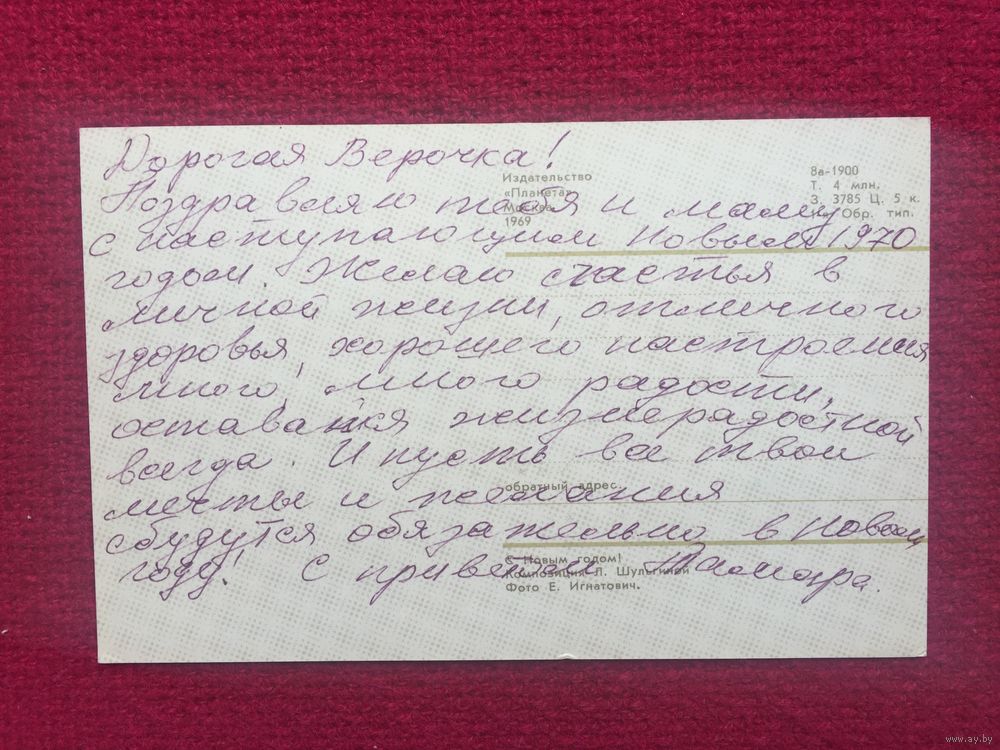 Дорогая Верочка!
Издательство
«Планета»
Москва
1969
8а-1900
Т. 4 млн.
З. 3785 Ц. 5 к.
Обр. тип.
Поздравляю тебя и маму
с наступающим Новым 1970
годом. Желаю счастья в
личной жизни, отличного
здоровья, хорошего настроения
много, много радости,
оставайся жизнерадостной
всегда. И пусть все твои
обратный адрес
мечты и желания
сбудутся обязательно в Новом
году! С приветом Тамара.
С Новым годом!
Композиция Л. Шульгиной
Фото Е. Игнатович.
www.ay.by